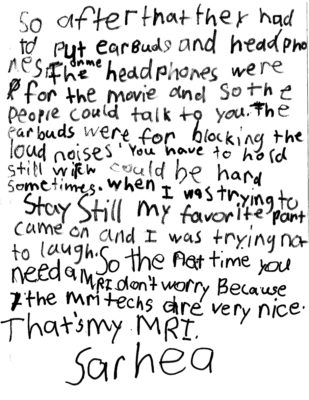 So after that they had
to put earbuds and headpho
nes on me. The headphones were
for the movie and so the
people could talk to you. The
earbuds were for blocking the
loud noises. You have to hold
still wich could be hard
sometimes. When I was trying to
Stay Still my favorite part
came on and I was trying not
to laugh. So the next time you
need a MRI don't worry Because
the mri techs are very nice.
That's my MRI.
Sarhea